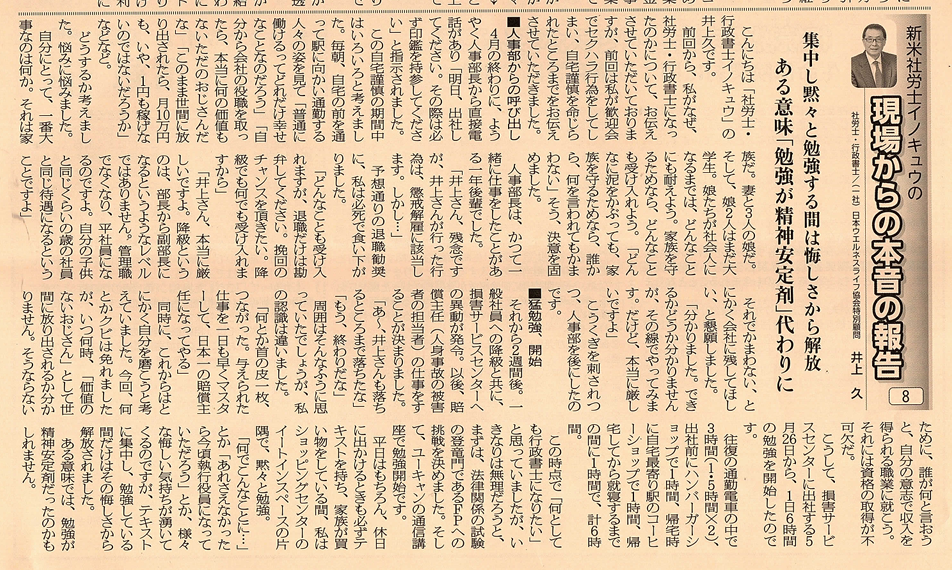 新米社労士イノキュウの
現場からの本音の報告
社労士・行政書士／(一社)日本ウエルネスライフ協会特別顧問
井上 久
8
集中し黙々と勉強する間は悔しさから解放
ある意味「勉強が精神安定剤」代わりに
こんにちは「社労士・
行政書士イノキュウ」の
井上久です。
前回から、私がなぜ、
社労士・行政書士になっ
たのかについて、お伝え
させていただいておりま
すが、前回は私が歓迎会
でセクハラ行為をしてし
まい、自宅謹慎を命じら
れたところまでをお伝え
させていただきました。
■人事部からの呼び出し
4月の終わりに、よう
やく人事部長から直接電
話があり「明日、出社し
てください。その際は必
ず印鑑を持参してくださ
い」と指示されました。
この自宅謹慎の期間中
はいろいろと考えまし
た。毎朝、自宅の前を通
って駅に向かい通勤する
人々の姿を見て「普通に
働けるってどれだけ幸せ
なことなのだろう」「自
分から会社の役職を取っ
たら、本当に何の価値も
ないただのおじさんだ
な」「このまま世間に放
り出されたら、月10万円
も、いや、1円も稼げな
いのではないだろうか」
などなど。
どうするか考えまし
た。悩みに悩みました。
自分にとって、一番大
事なのは何か。それは家
族だ。妻と3人の娘だ。
そして、娘2人はまだ大
学生。娘たちが社会人に
なるまでは、どんなこと
にも耐えよう。家族を守
るためなら、どんなこと
も受け入れよう。「どん
なに泥をかぶっても、家
族を守るためなら、誰か
ら、何を言われてもかま
わない」そう、決意を固
めました。
人事部長は、かつて一
緒に仕事をしたことがあ
る一年後輩でした。
「井上さん、残念です
が、井上さんが行った行
為は、懲戒解雇に該当し
ます。しかし…」
予想通りの退職勧奨
に、私は必死で食い下が
りました。
「どんなことも受け入
れますが、退職だけは勘
弁してください。挽回の
チャンスを頂きたい。降
級でも何でも受け入れま
すから」
「井上さん、本当に厳
しいですよ。降級という
のは、部長から副部長に
なるというようなレベル
ではありません。管理職
でなくなり、平社員にな
るのですよ。自分の子供
と同じくらいの歳の社員
と同じ待遇になるという
ことですよ」
それでもかまわない、と
にかく会社に残してほし
い、と懇願しました。
「分かりました。でき
るかどうか分かりません
が、その線でやってみま
す。だけど、本当に厳し
いですよ」
こうくぎを刺されつ
つ、人事部を後にしたの
です。
■猛勉強、開始
それから2週間後。一
般社員への降級と共に、
損害サービスセンターへ
の異動が発令。以後、賠
償主任(人身事故の被害
者の担当者)の仕事をす
ることが決まりました。
「あ〜、井上さんも落ち
るところまで落ちたな」
「もう、終わりだな」
周囲はそんなふうに思
っていたでしょうが、私
の認識は違いました。
「何とか首の皮一枚、
つながった。与えられた
仕事を一日も早くマスタ
ーして、日本一の賠償主
任になってやる」
同時に、これからはと
にかく自分を磨こうと考
えていました。今回、何
とかクビは免れました
が、いつ何時、「価値の
ないおじさん」として世
間に放り出されるか分か
りません。そうならない
ために、誰が何と言おう
と、自分の意志で収入を
得られる職業に就こう。
それには資格の取得が不
可欠だ。
こうして、損害サービ
スセンターに出社する5
月26日から、1日6時間
の勉強を開始したので
す。
往復の通勤電車の中で
3時間(1・5時間×2)、
出社前にハンバーガーシ
ョップで1時間、帰宅時
に自宅最寄り駅のコーヒ
ーショップで1時間、帰
宅してから就寝するまで
の間に1時間で、計6時
間。
この時点で「何として
も行政書士になりたい」
と思っていましたが、い
きなりは無理だろうと、
まずは、法律関係の試験
の登竜門であるFPへの
挑戦を決めました。そし
て、ユーキャンの通信講
座で勉強開始です。
平日はもちろん、休日
に出かけるときも必ずテ
キストを持ち、家族が買
い物をしている間、私は
ショッピングセンターの
イートインスペースの片
隅で、黙々と勉強。
「何でこんなことに…」
とか「あれさえなかった
ら今頃執行役員になって
いただろう」とか、様々
な悔しい気持ちが湧いて
くるのですが、テキスト
に集中し、勉強している
間だけはその悔しさから
解放されました。
ある意味では、勉強が
精神安定剤だったのかも
しれません。